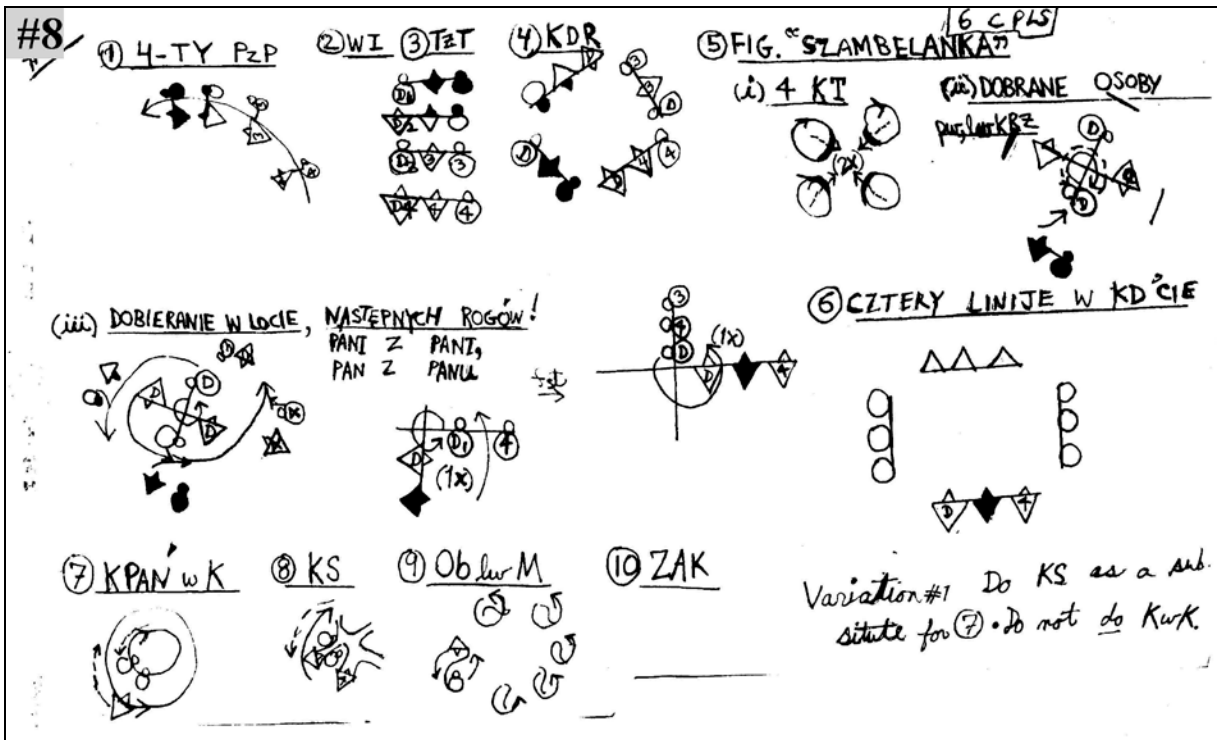 #8
6 CPLS
① 4-TY PzP
② WI ③ TzT
④ KDR
⑤ FIG. "SZAMBELANKA"
(i) 4 KT
(2x)
(ii) DOBRANE OSOBY
(iii) DOBIERANIE W LOCIE, NASTĘPNYCH ROGÓW!
PANI Z PANIĄ,
PAN Z PANEM
(1x)
(1x)
⑥ CZTERY LINIJE W KD'CIE
⑦ KPAŃ w K
⑧ KS
⑨ Ob lw M
⑩ ZAK
Variation #1 Do KS as a sub.
situte for ⑦ • Do not do KwK.